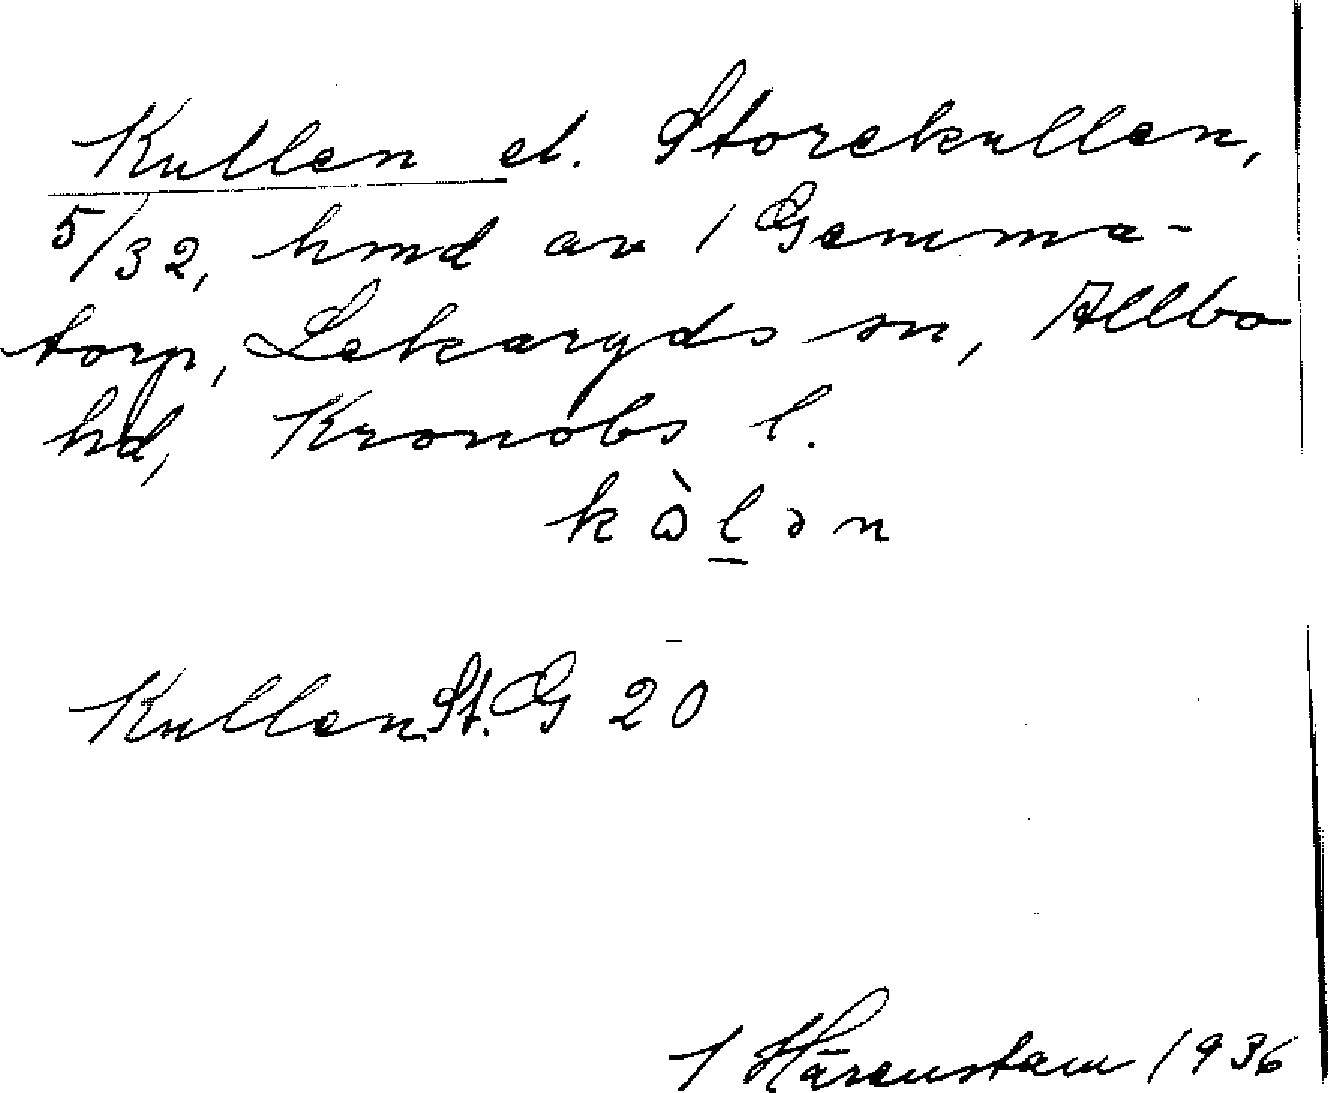 Kullen el. Storekullen,
5/32, hmd av 1 Gemma-
torp, Lekaryds sn, Allbo
hd, Kronobs l.
kòḻən
Kullen St. G 20
I Härenstam 1936